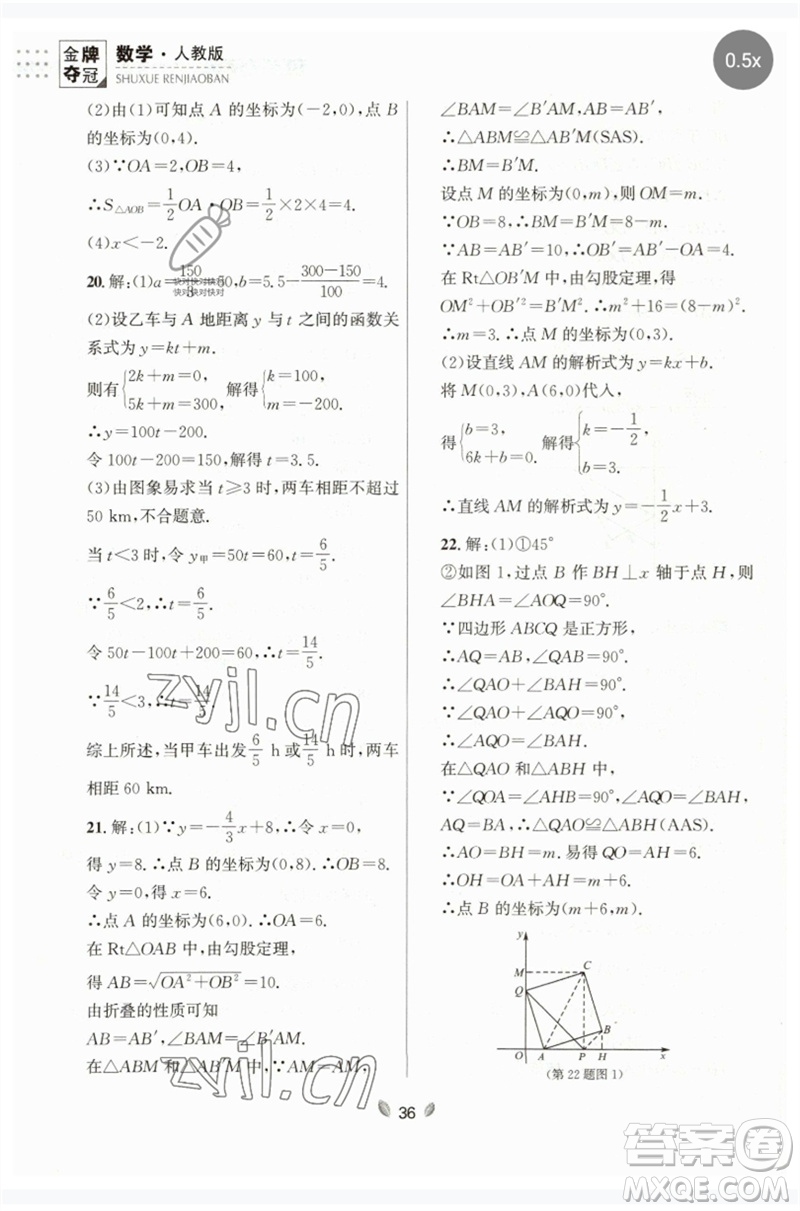 金牌夺冠 数学·人教版
SHUXUE RENJIAOBAN
0.5x
(2)由(1)可知点 A 的坐标为(-2,0),点 B
的坐标为(0,4).
(3)∵OA=2,OB=4,
∴S△AOB=1/2 OA·OB=1/2×2×4=4.
(4)x<-2.
20.解:(1)a=150/3=50,b=5.5-(300-150)/100=4.
快对快对快对快对
快对快对快对快对
(2)设乙车与 A 地距离 y 与 t 之间的函数关
系式为 y=kt+m.
则有{2k+m=0, 5k+m=300, 解得{k=100, m=-200.
∴y=100t-200.
令 100t-200=150,解得 t=3.5.
(3)由图象易求当 t≥3 时,两车距离不超过
50 km,不合题意.
当 t<3 时,令 y甲=50t=60,t=6/5.
∵6/5<2,∴t=6/5.
令 50t-100t+200=60,∴t=14/5.
∵14/5<3,∴t=14/5.
综上所述,当甲车出发 6/5 h 或 14/5 h 时,两车
相距 60 km.
21.解:(1)∵y=-4/3 x+8,∴令 x=0,
得 y=8.∴点 B 的坐标为(0,8).∴OB=8.
令 y=0,得 x=6.
∴点 A 的坐标为(6,0).∴OA=6.
在 Rt△OAB 中,由勾股定理,
得 AB=√(OA²+OB²)=10.
由折叠的性质可知
AB=AB′,∠BAM=∠B′AM.
在△ABM 和△AB′M 中,
zyjl.cn
zyjl.cn
∠BAM=∠B′AM,AB=AB′,
∴△ABM≌△AB′M(SAS).
∴BM=B′M.
设点 M 的坐标为(0,m),则 OM=m.
∵OB=8,∴BM=B′M=8-m.
∵AB=AB′=10,∴OB′=AB′-OA=4.
在 Rt△OB′M 中,由勾股定理,得
OM²+OB′²=B′M².∴m²+16=(8-m)².
∴m=3.∴点 M 的坐标为(0,3).
(2)设直线 AM 的解析式为 y=kx+b.
将 M(0,3),A(6,0)代入,
得{b=3, 6k+b=0. 解得{k=-1/2, b=3.
∴直线 AM 的解析式为 y=-1/2 x+3.
22.解:(1)①45°
②如图 1,过点 B 作 BH⊥x 轴于点 H,则
∠BHA=∠AOQ=90°.
∵四边形 ABCQ 是正方形,
∴AQ=AB,∠QAB=90°.
∴∠QAO+∠BAH=90°.
∵∠QAO+∠AQO=90°,
∴∠AQO=∠BAH.
在△QAO 和△ABH 中,
∵∠QOA=∠AHB=90°,∠AQO=∠BAH,
AQ=BA,∴△QAO≌△ABH(AAS).
∴AO=BH=m.易得 QO=AH=6.
∴OH=OA+AH=m+6.
∴点 B 的坐标为(m+6,m).
y
M
C
Q
B
O A P H x
(第 22 题图 1)
36
答案卷
MXQE.COM